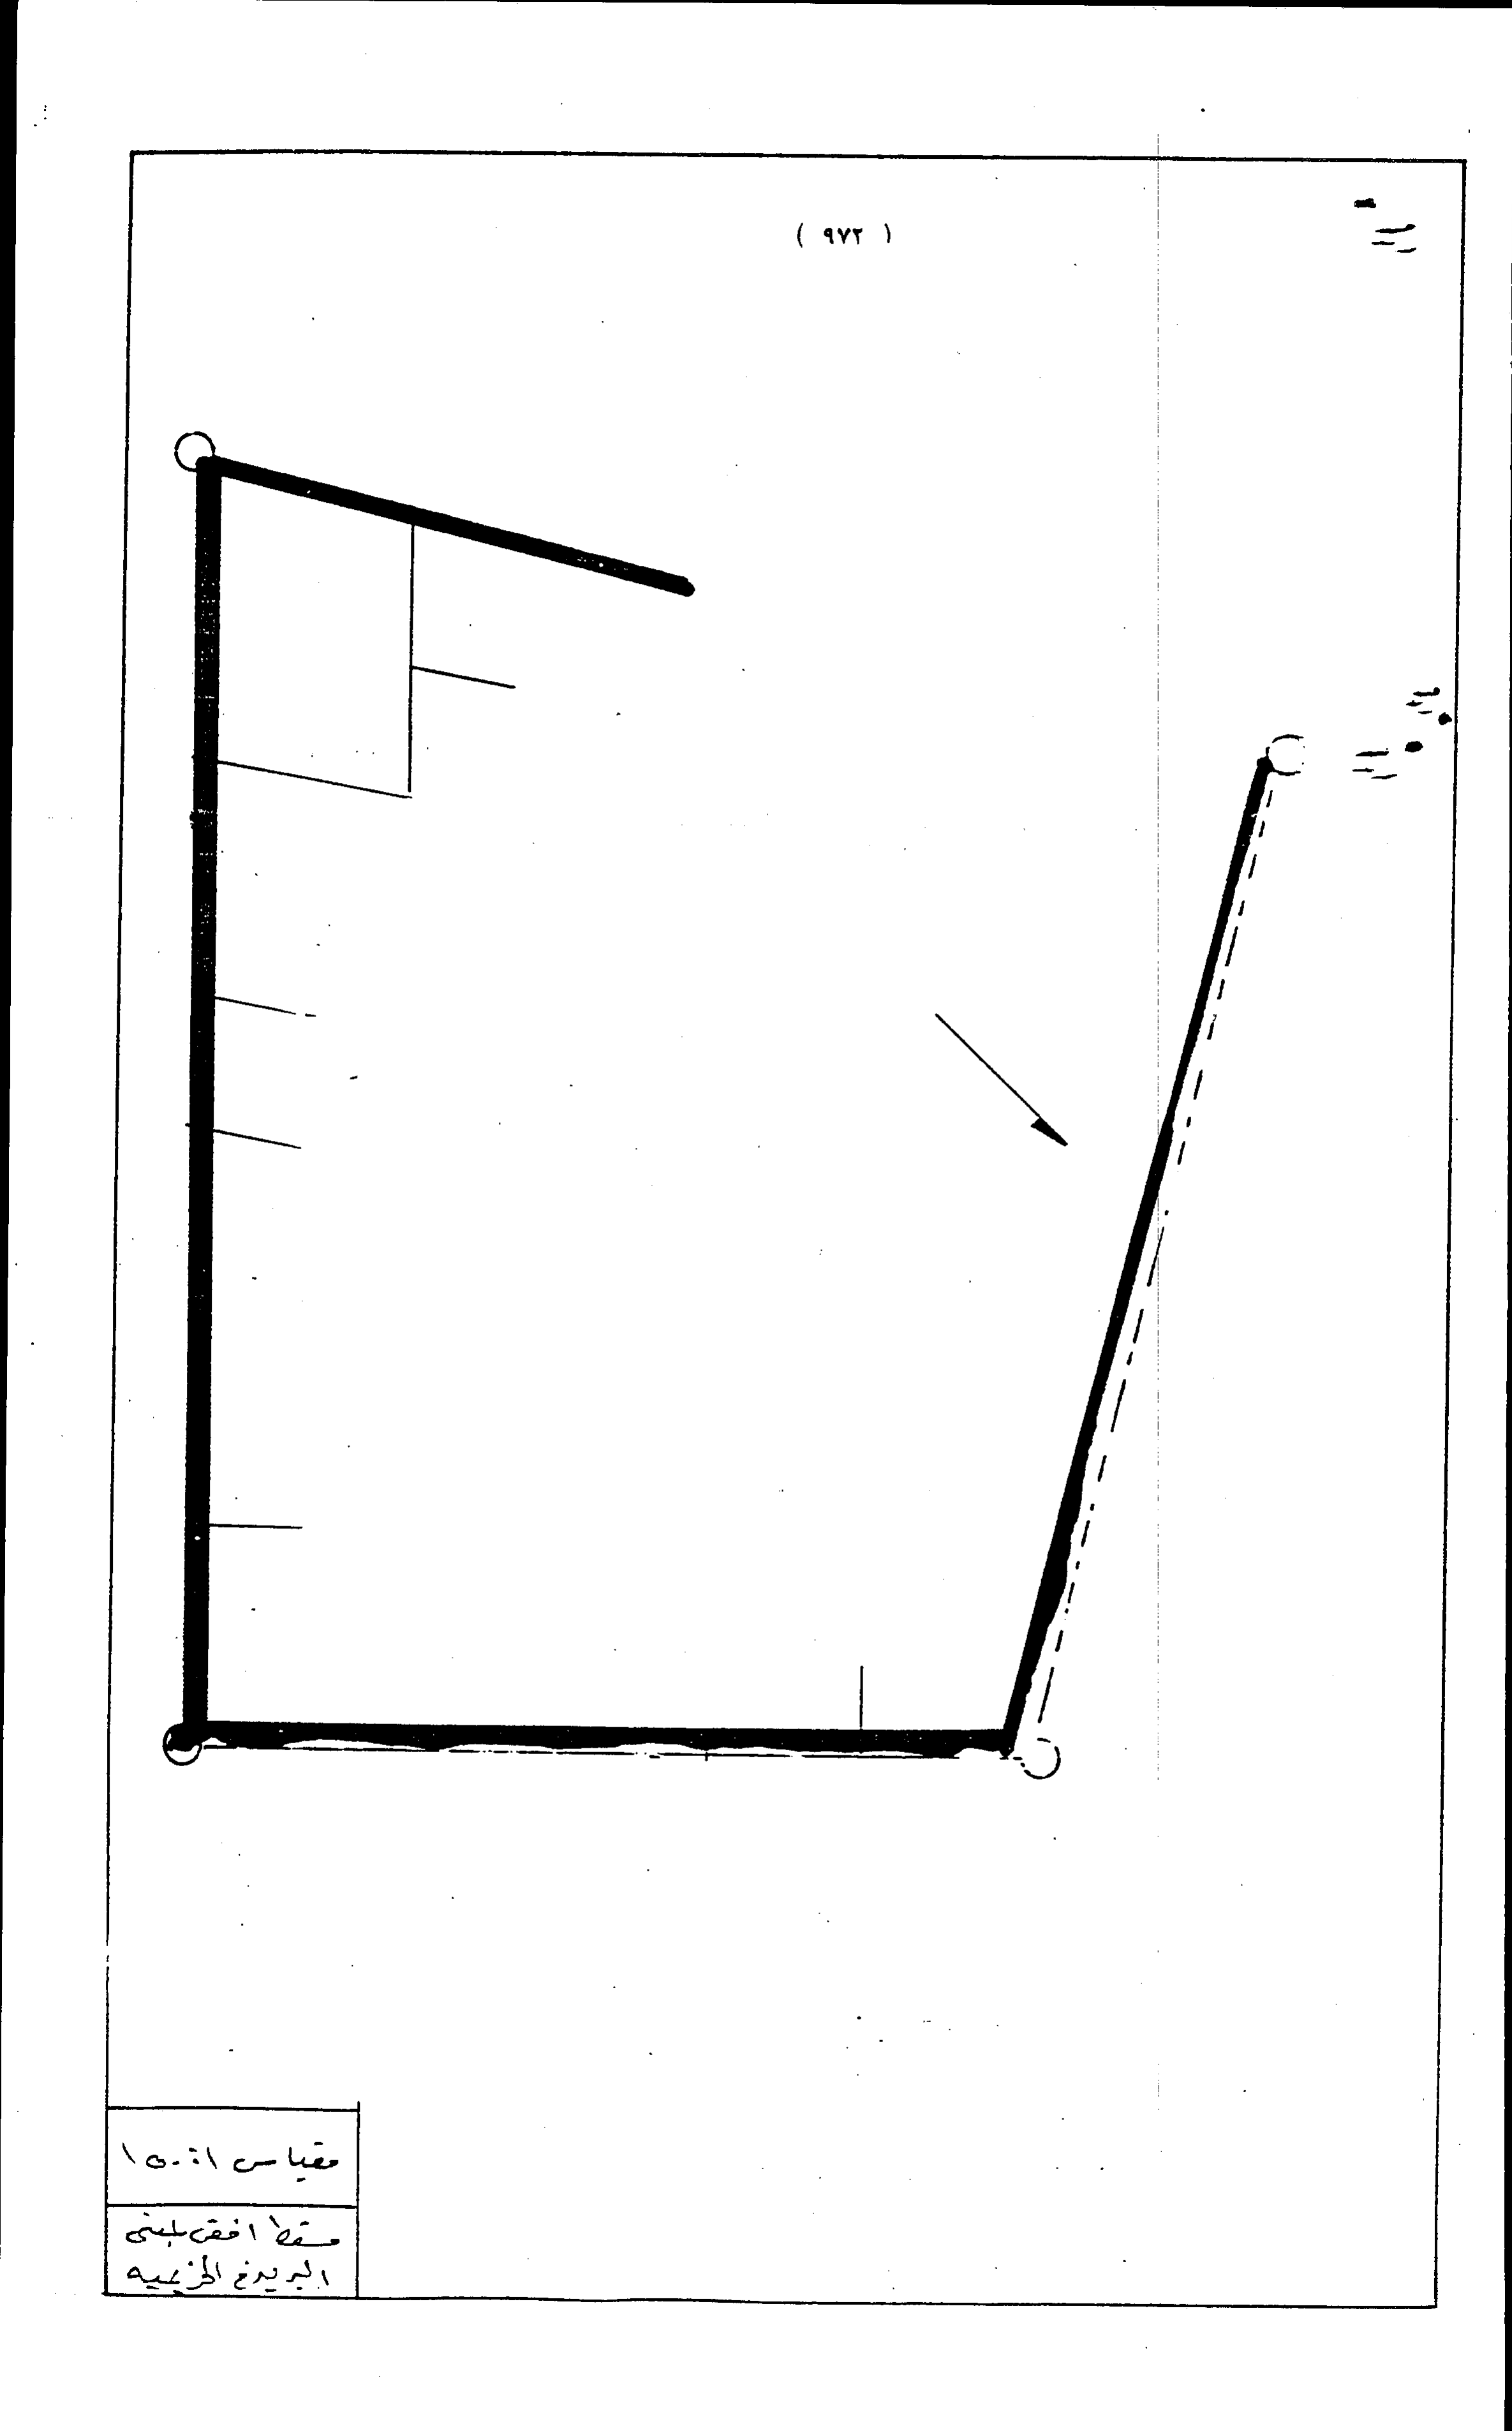 ( ٩٧٢ )
مقياس ١:١٥٠
مسقط افقى لمبنى
البريد فى الخزعليه